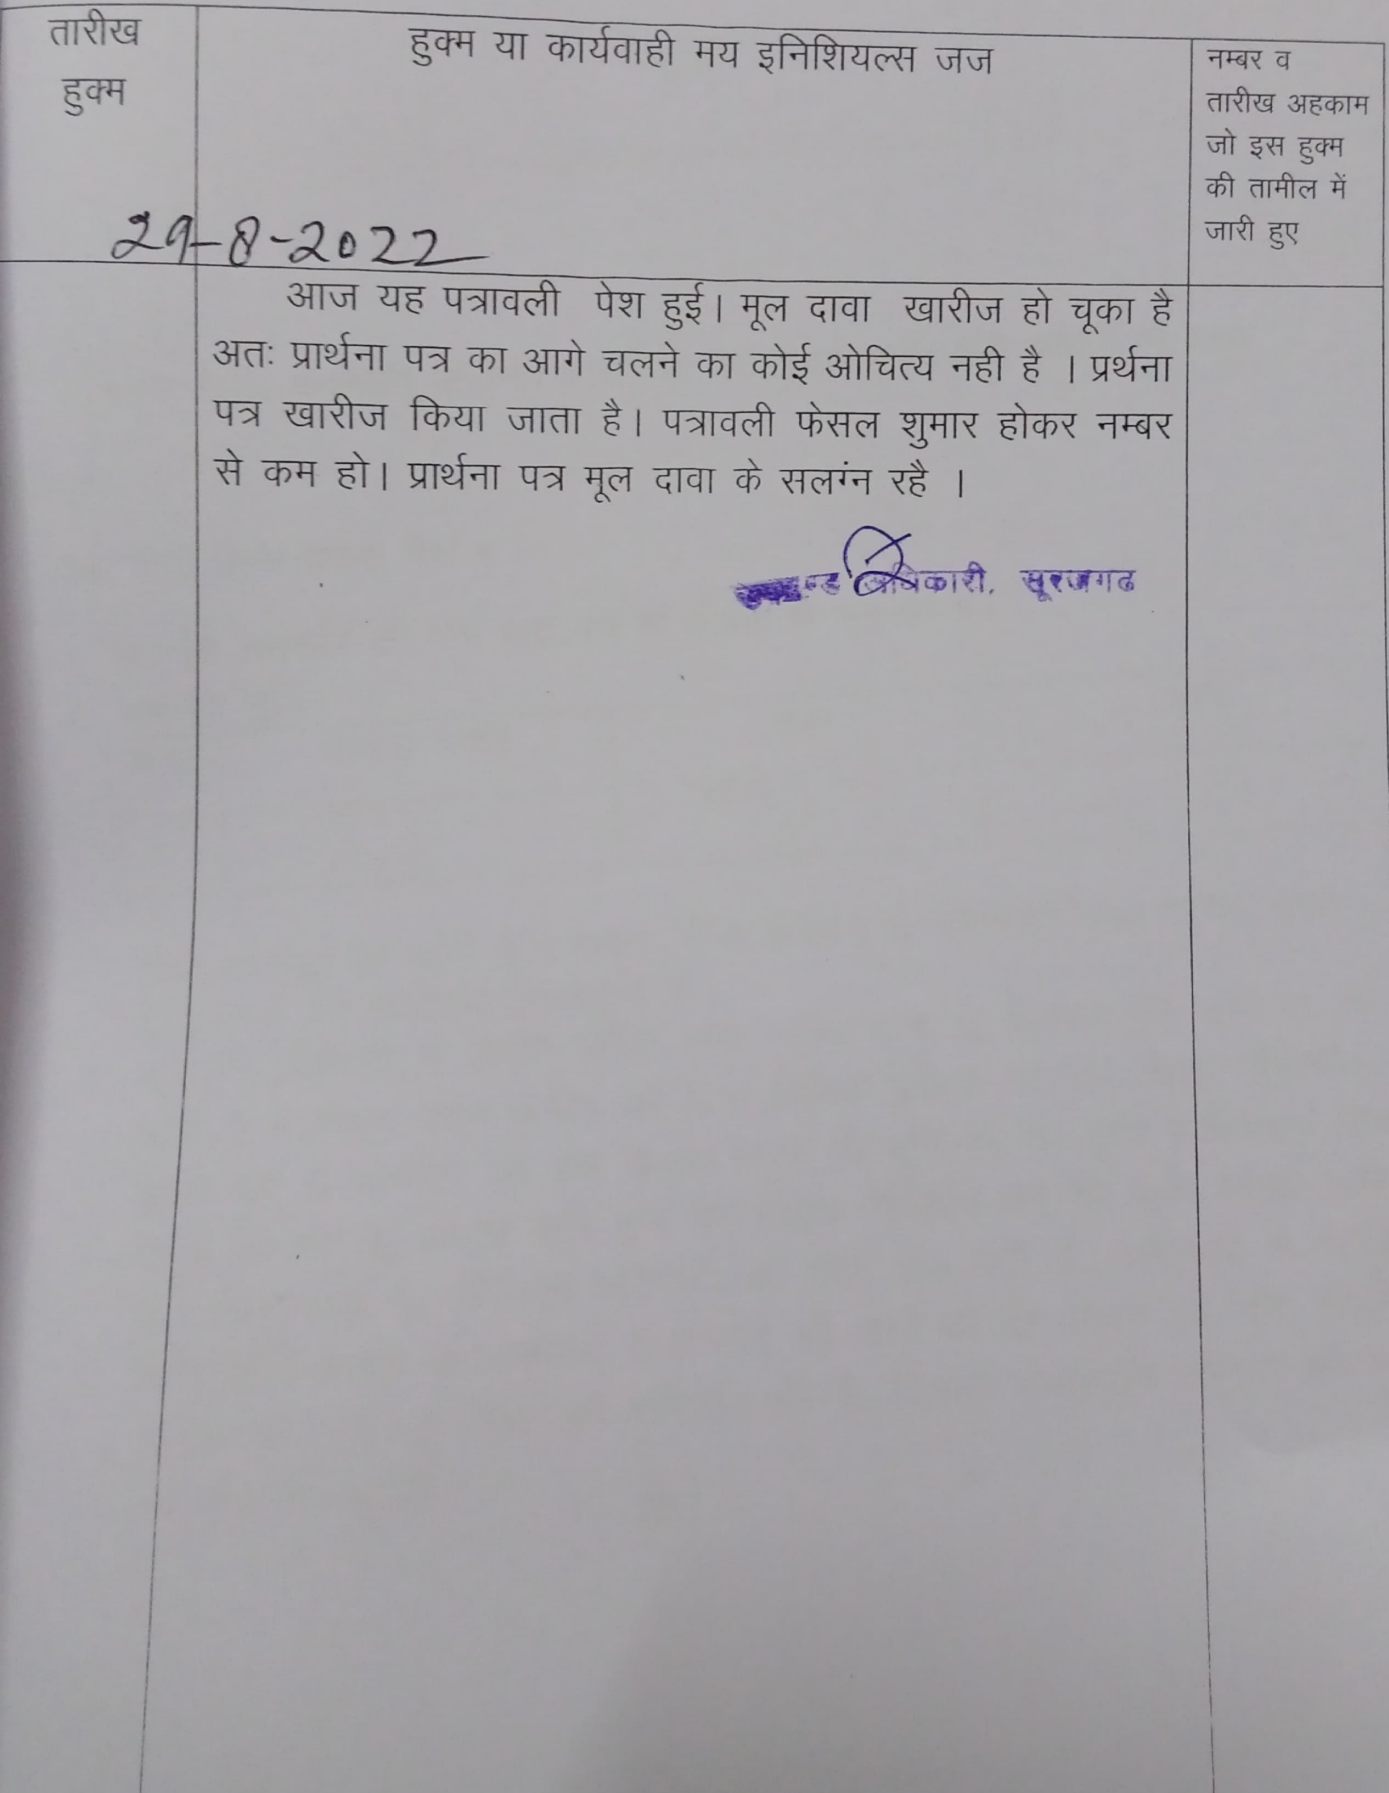 तारीख
हुक्म
हुक्म या कार्यवाही मय इनिशियल्स जज
नम्बर व
तारीख अहकाम
जो इस हुक्म
की तामील में
जारी हुए
29-8-2022
आज यह पत्रावली पेश हुई। मूल दावा खारीज हो चूका है
अतः प्रार्थना पत्र का आगे चलने का कोई ओचित्य नही है । प्रर्थना
पत्र खारीज किया जाता है। पत्रावली फेसल शुमार होकर नम्बर
से कम हो। प्रार्थना पत्र मूल दावा के सलग्ंन रहै ।
सूरजगढ